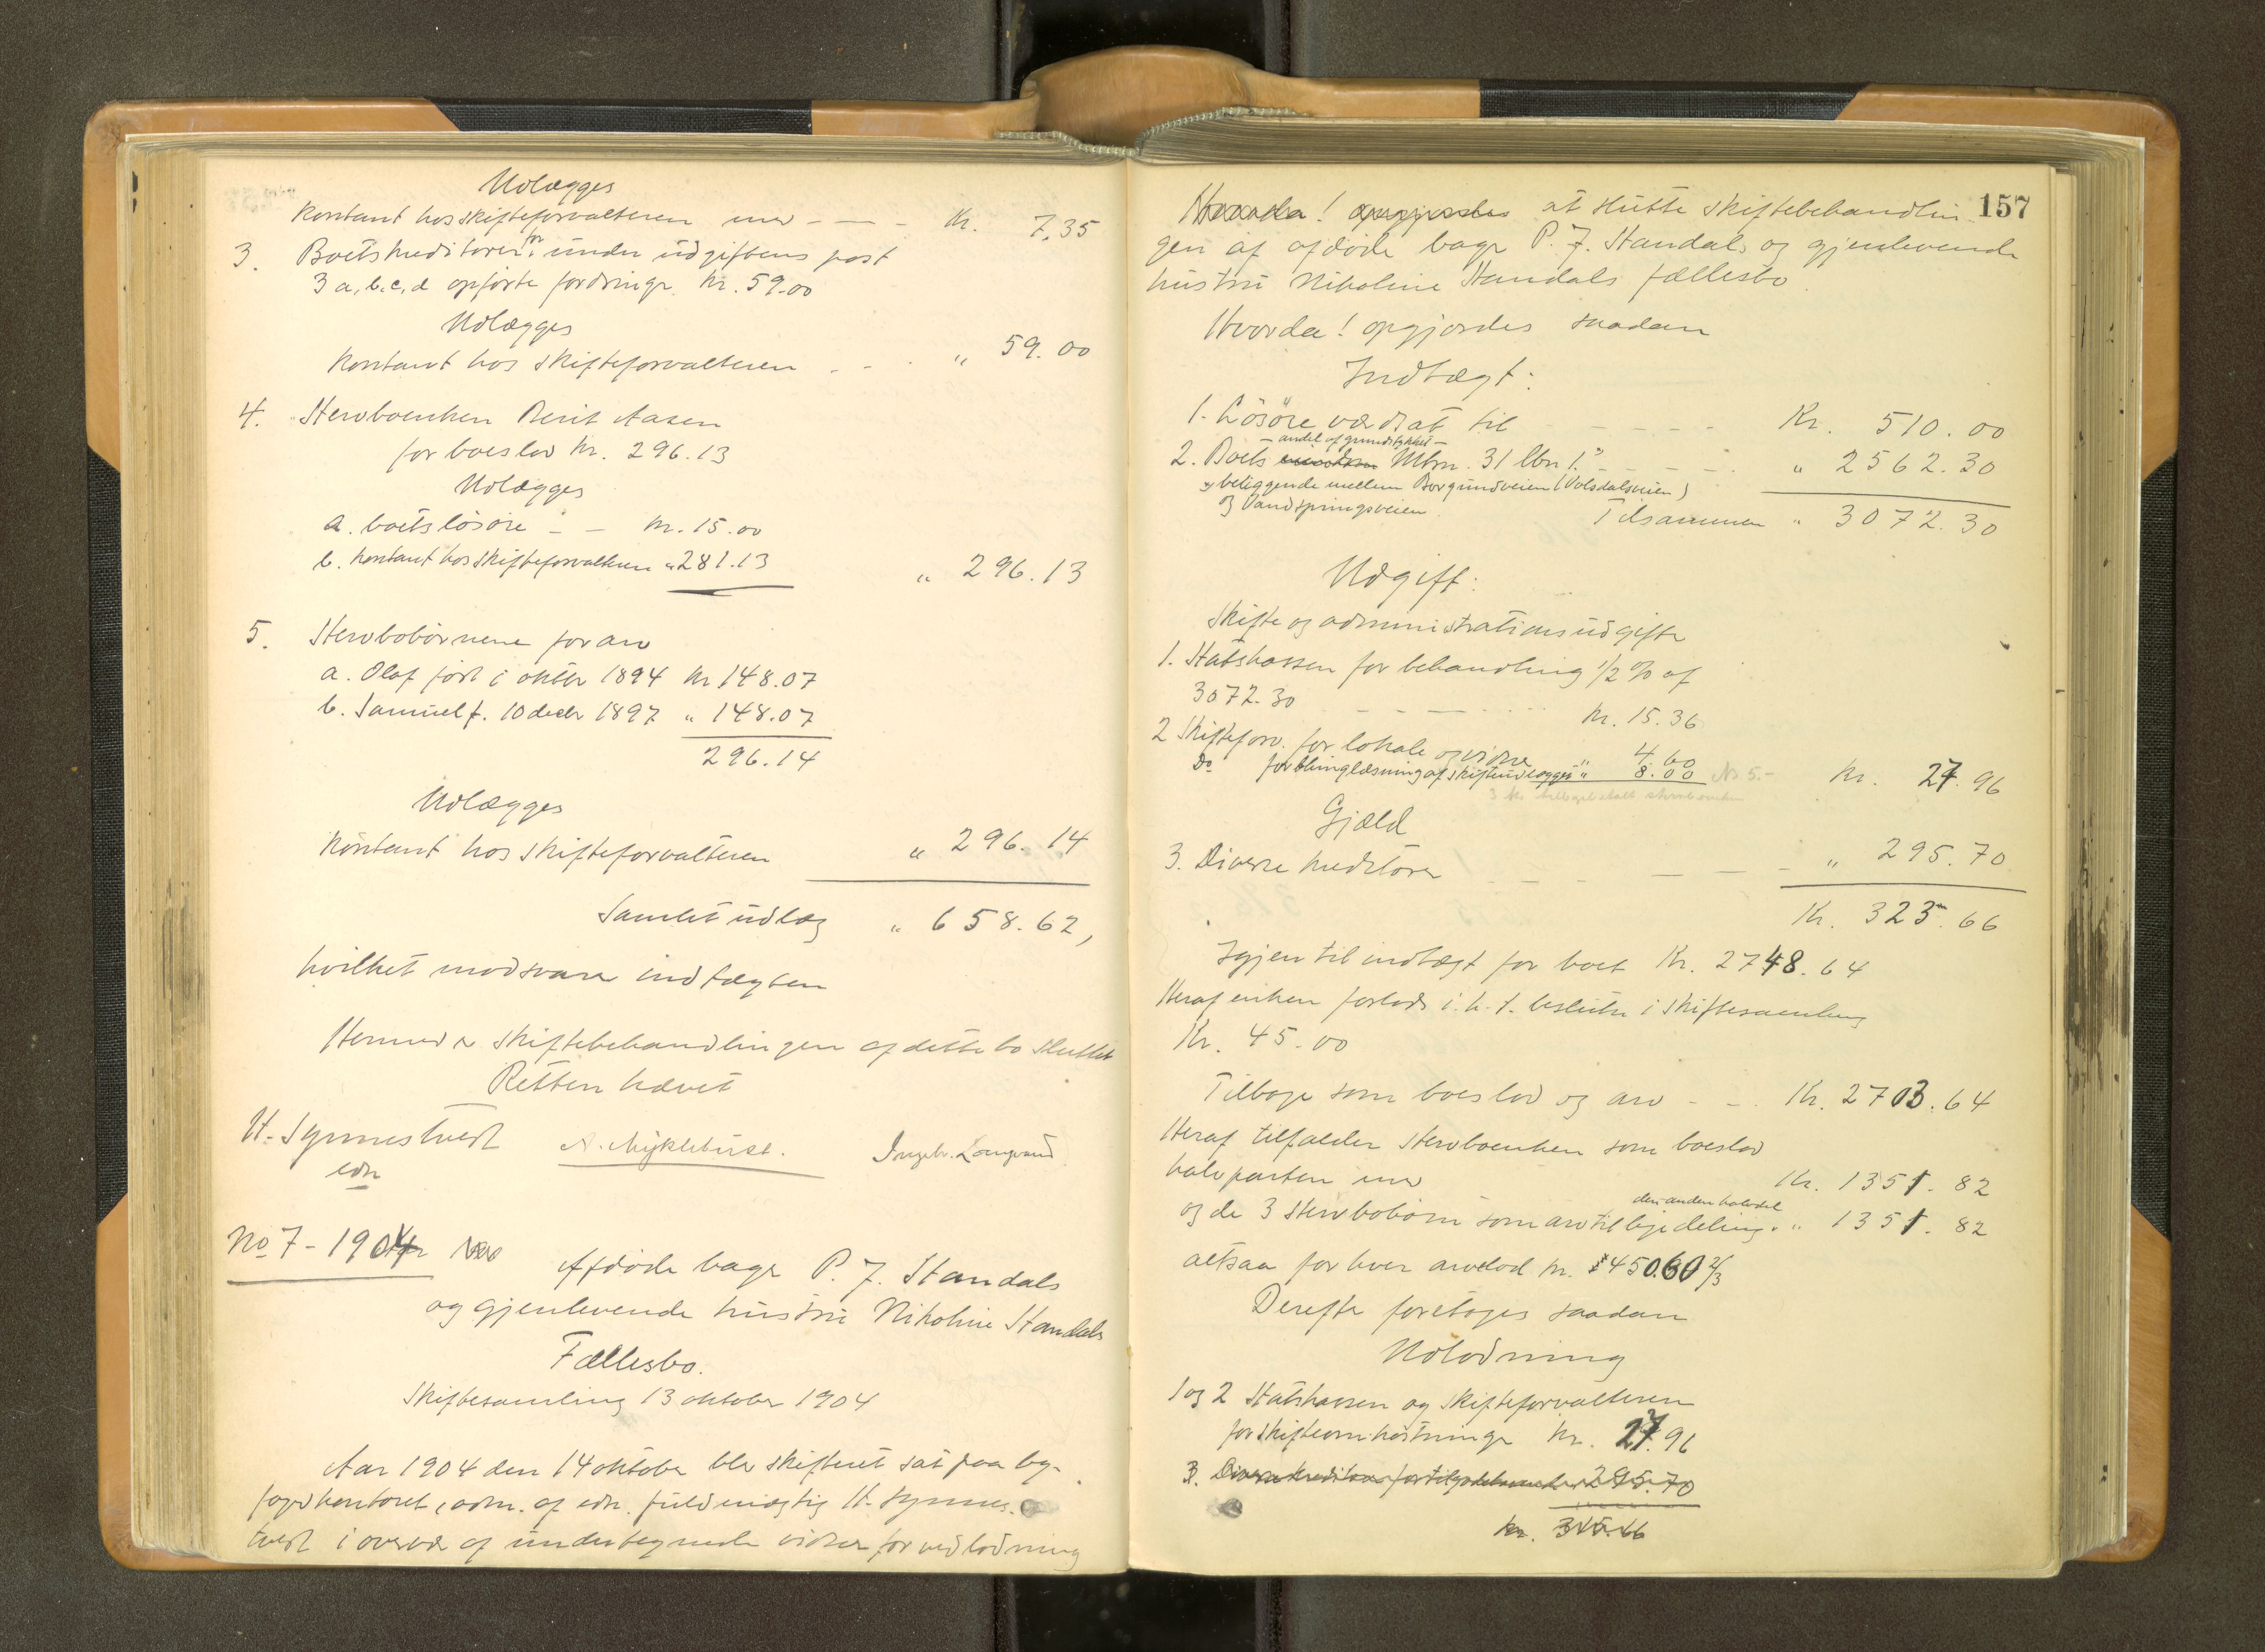 Udlægges
Kontant hos skifteforvalteren med - — - Kr. 7,35
3. Boets kreditorer for under udgiftens post
3 a, b, c, d opførte fordringer Kr. 59.00
Udlægges
Kontant hos skifteforvalteren . - . „ 59.00
4. Stervboenken Berit Aasen
for boeslod Kr. 296.13
Udlægges
a. boets løsøre - - Kr. 15.00
b. kontant hos skifteforvalteren „ 281.13
„ 296.13
5. Stervbobørnene for arv
a. Olaf født i oktbr 1894 Kr 148.07
b. Samuel f. 10 decbr 1897 „ 148.07
296.14
Udlægges
Kontant hos skifteforvalteren „ 296.14
Samlet udlæg „ 658.62,
hvilket modsvarer indtægten
Hermed er skiftebehandlingen af dette bo sluttet
Retten hævet
H. Synnestvedt A. Myklebust. Ingebr. Langvand
edn
No 7 - 1904
Afdøde bager P. J. Standals
og gjenlevende hustru Nikoline Standals
Fællesbo.
Skiftesamling 13 oktober 1904
Aar 1904 den 14 oktober blev skifteret sat paa by-
fogedkontoret, adm. af edsv. fuldmægtig H. Synnes-
tvedt i overvær af undertegnede vidner for ved lodning
157
Hvorda! opgjordes at slutte skiftebehandlin
gen af afdøde bager P. J. Standals og gjenlevende
hustru Nikoline Standals fællesbo.
Hvorda! opgjordes saadan
Indtægt:
1. Løsøre værdsat til - - - - Kr. 510.00
- andel af grundstykket -
2. Boets Mbrn. 31 lbn 1. - - - - „ 2562.30
beliggende mellem Borgundveien (Volsdalsveien)
og Vandspringsveien
Tilsammen „ 3072.30
Udgift:
Skifte og administrationsudgifter
1. Statskassen for behandling 1/2 % af
3072.30 - - - - Kr. 15.36
2 Skifteforv. for lokale og vidner „ 4.60
Do for thinglæsning af skifteudlægget „ 8.00 Kr. 27.96
Gjæld
3. Diverse kreditorer - - - - - „ 295.70
Kr. 323.66
Igjen til indtægt for boet Kr. 2748.64
Heraf enken forlods i. h. t. beslutn i skiftesamling
Kr. 45.00
Tilbage som boeslod og arv - - . Kr. 2703.64
Heraf tilfalder stervboenken som boeslod
halvparten med Kr. 1351.82
den anden halvdel
og de 3 stervbobørn som arv til lige deling. „ 1351.82
altsaa for hver arvelod Kr. 450.60 2/3
Derefter foretages saadan
Udlodning
1 og 2 Statskassen og skifteforvalteren
for skifteomkostninger Kr. 27.96
3. Diverse kreditorer for tilgodehavende 295.70
Kr.